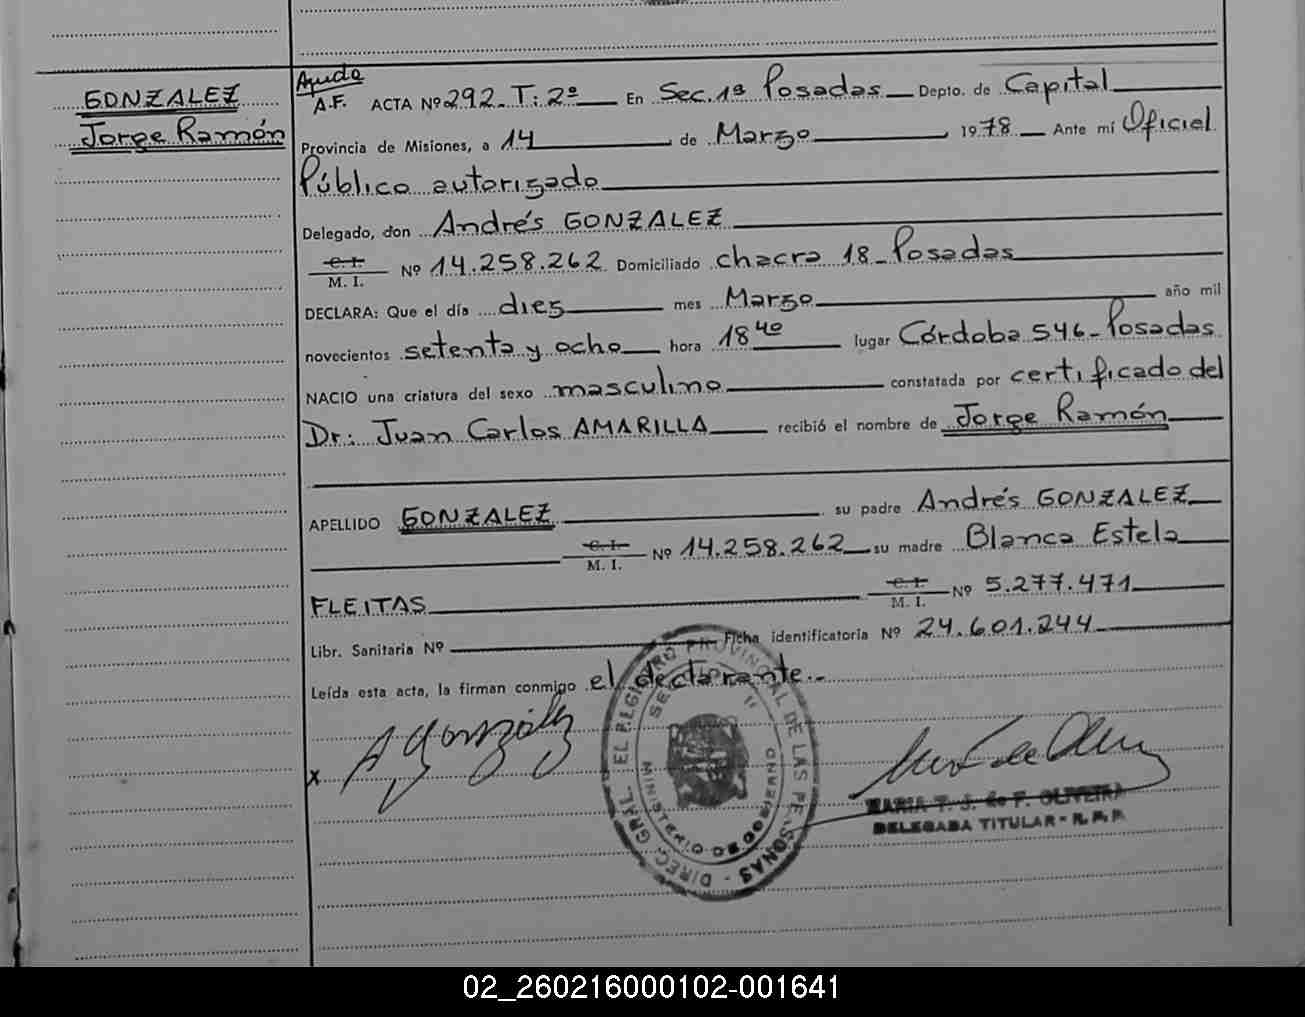 GONZALEZ
Jorge Ramón
Ayuda
A.F. ACTA Nº 292 T: 2º En Sec. 1ª Posadas Depto. de Capital
Provincia de Misiones, a 14 de Marzo 1978 Ante mí Oficial
Público autorizado
Delegado, don Andrés GONZALEZ
C. I.
M. I. Nº 14.258.262 Domiciliado chacra 18_Posadas
DECLARA: Que el día dies mes Marzo año mil
novecientos setenta y ocho hora 18 40 lugar Córdoba 546_Posadas
NACIO una criatura del sexo masculino constatada por certificado del
Dr: Juan Carlos AMARILLA recibió el nombre de Jorge Ramón
APELLIDO GONZALEZ su padre Andrés GONZALEZ
C. I.
M. I. Nº 14.258.262 su madre Blanca Estela
FLEITAS C. I.
M. I. Nº 5.277.471
Libr. Sanitaria Nº Ficha identificatoria Nº 24.601.244
Leída esta acta, la firman conmigo el declarante._
x A González
MARIA T. J. de F. OLIVEIRA
DELEGADA TITULAR - R. P. P.
DIREC. GRAL. EL REGISTRO PROVINCIAL DE LAS PERSONAS
MINISTERIO DE GOBIERNO
02_260216000102-001641